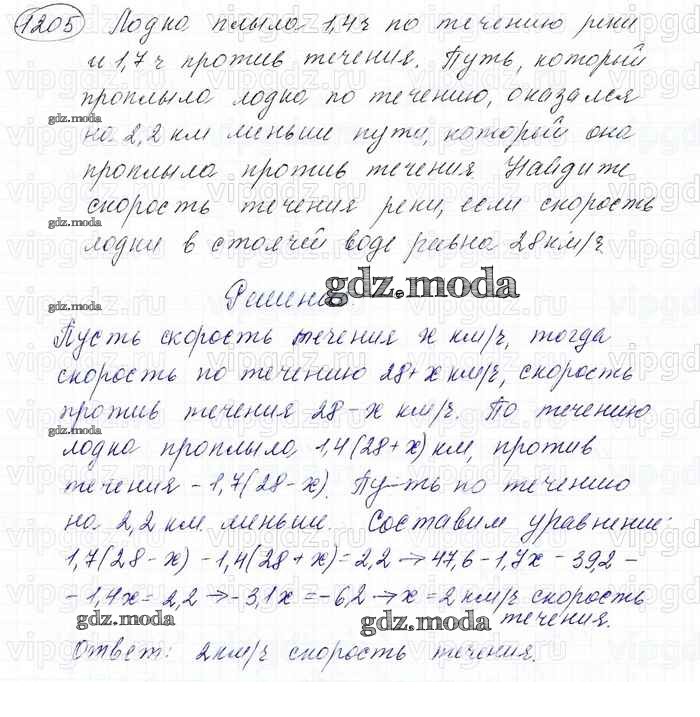 1205 Лодка плыла 1,4 ч по течению реки
и 1,7 ч против течения. Путь, который
проплыла лодка по течению, оказался
на 2,2 км меньше пути, который она
проплыла против течения. Найдите
скорость течения реки, если скорость
лодки в стоячей воде равна 28 км/ч.
Решение
Пусть скорость течения x км/ч, тогда
скорость по течению 28+x км/ч, скорость
против течения 28-x км/ч. По течению
лодка проплыла 1,4(28+x) км, против
течения - 1,7(28-x). Путь по течению
на 2,2 км меньше. Составим уравнение:
1,7(28-x) - 1,4(28+x) = 2,2 → 47,6 - 1,7x - 39,2 -
- 1,4x = 2,2 → - 3,1x = -6,2 → x = 2 км/ч скорость
течения.
Ответ: 2 км/ч скорость течения.
gdz.moda
vipgdz.ru